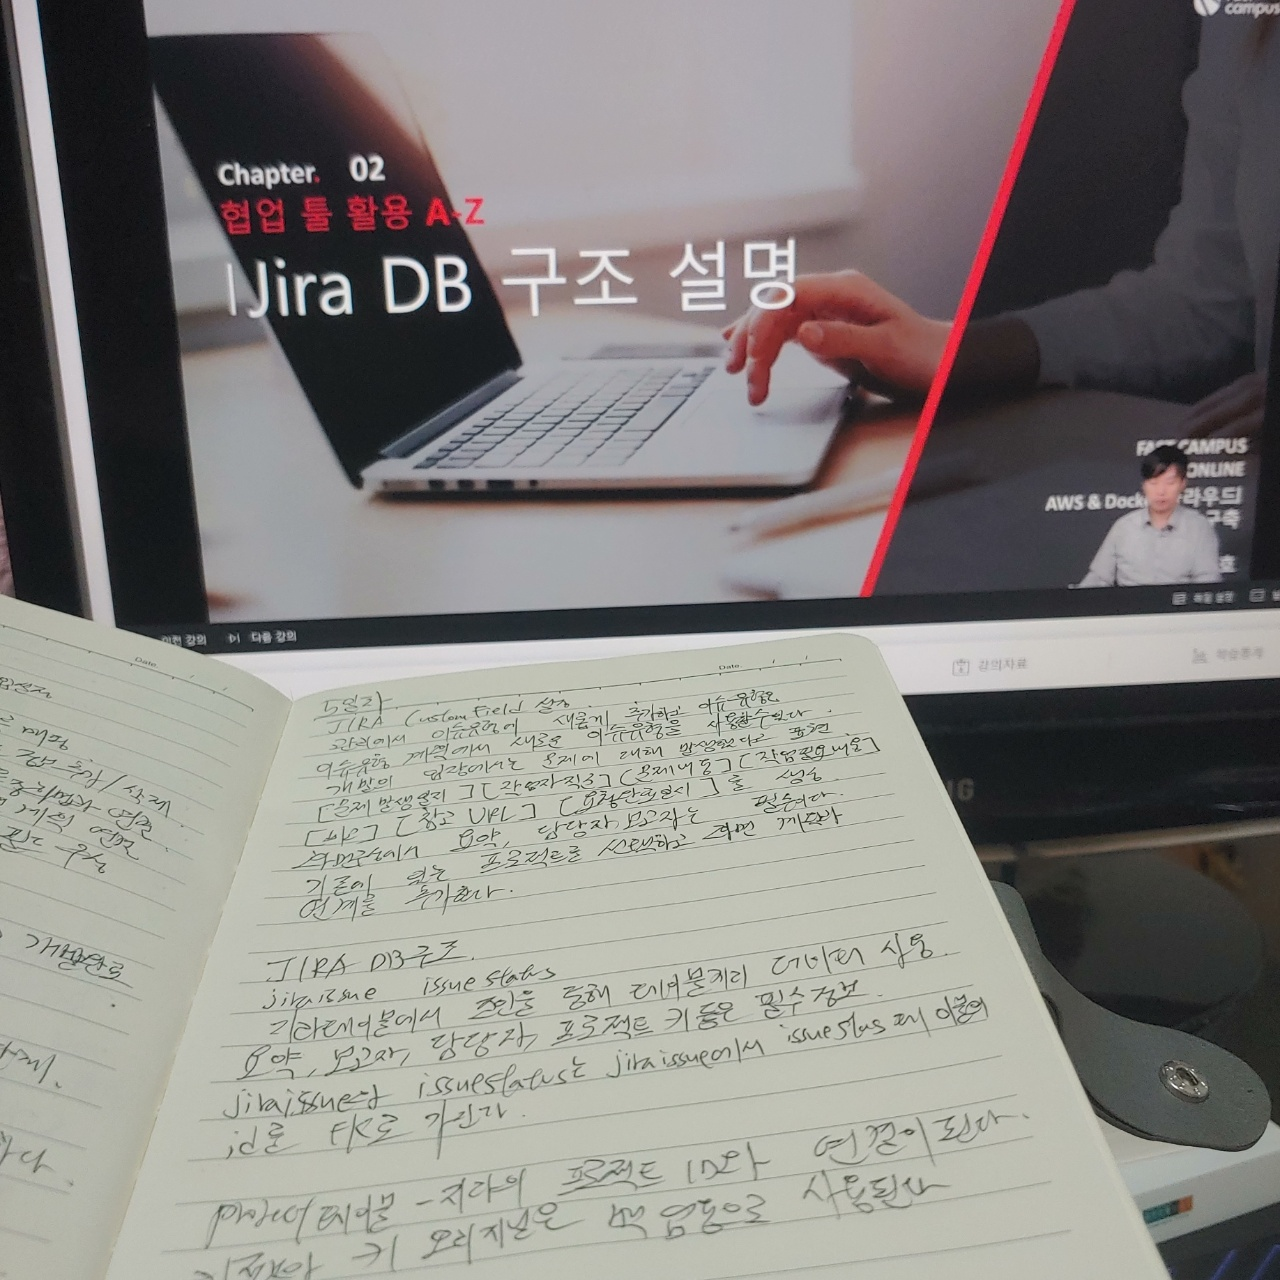 campus
Chapter. 02
협업 툴 활용 A-Z
Jira DB 구조 설명
FAST CAMPUS
ONLINE
AWS & Docker
구축
이전 강의 다음 강의
강의자료
Date
Date
5일차
JIRA Custom Field 설정
관리에서 이슈유형에 새롭게 추가하고 이슈유형은
이슈유형 계획에서 새로운 이슈유형을 사용할수있다.
개발의 입장에서는 문제에 대해 발생했다고 표현
[문제 발생일시] [작업자직급] [문제내용] [작업필요내용]
[참고 URL] [요청완료일시] 를 생성
화면구성에서 요약, 담당자, 보고자는 필수이다.
기존에 있는 프로젝트를 선택하고 화면 계획과
연계를 추가한다.
JIRA DB구조.
jiraissue issuestatus
지라테이블에서 조인을 통해 테이블끼리 데이터 사용.
요약, 보고자, 담당자, 프로젝트 키 등은 필수정보.
jiraissue와 issuestatus는 jiraissue에서 issuestus 테이블의
id를 FK로 가진다.
project테이블 - 지라의 프로젝트 ID와 연결이 된다.
키 오리지널은 백업용으로 사용된다
추가/삭제
계획 연관
필드 구성
개발완료